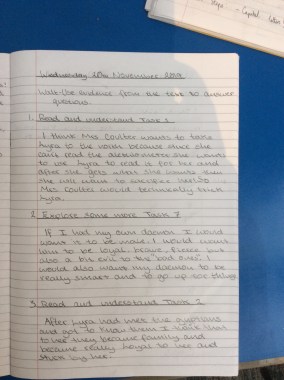 Maps - Capital letters
Wednesday 20th November 2019
Walt- Use evidence from the text to answer
questions.
1. Read and understand Task 1
I think Mrs Coulter wants to take
Lyra to the north because since she
can't read the alethiometer she wants
to use Lyra to read it for her and
after she gets what she wants then
she will want to sacrifice her. So
Mrs Coulter would technically trick
Lyra.
2. Explore some more Task 8
If I had my own daemon I would
want it to be male. I would want
him to be loyal, brave, fierce but
also a bit evil to the bad ones. I
would also want my daemon to be
really smart and to go up to things
3. Read and understand Task 2
After Lyra had met the gyptians
and got to know them I think that
to her they became family and
became really loyal to her and
stuck by her.